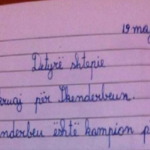 19 maj
Detyrë shtëpie
për Skenderbeun.
nderbeu është kampion p